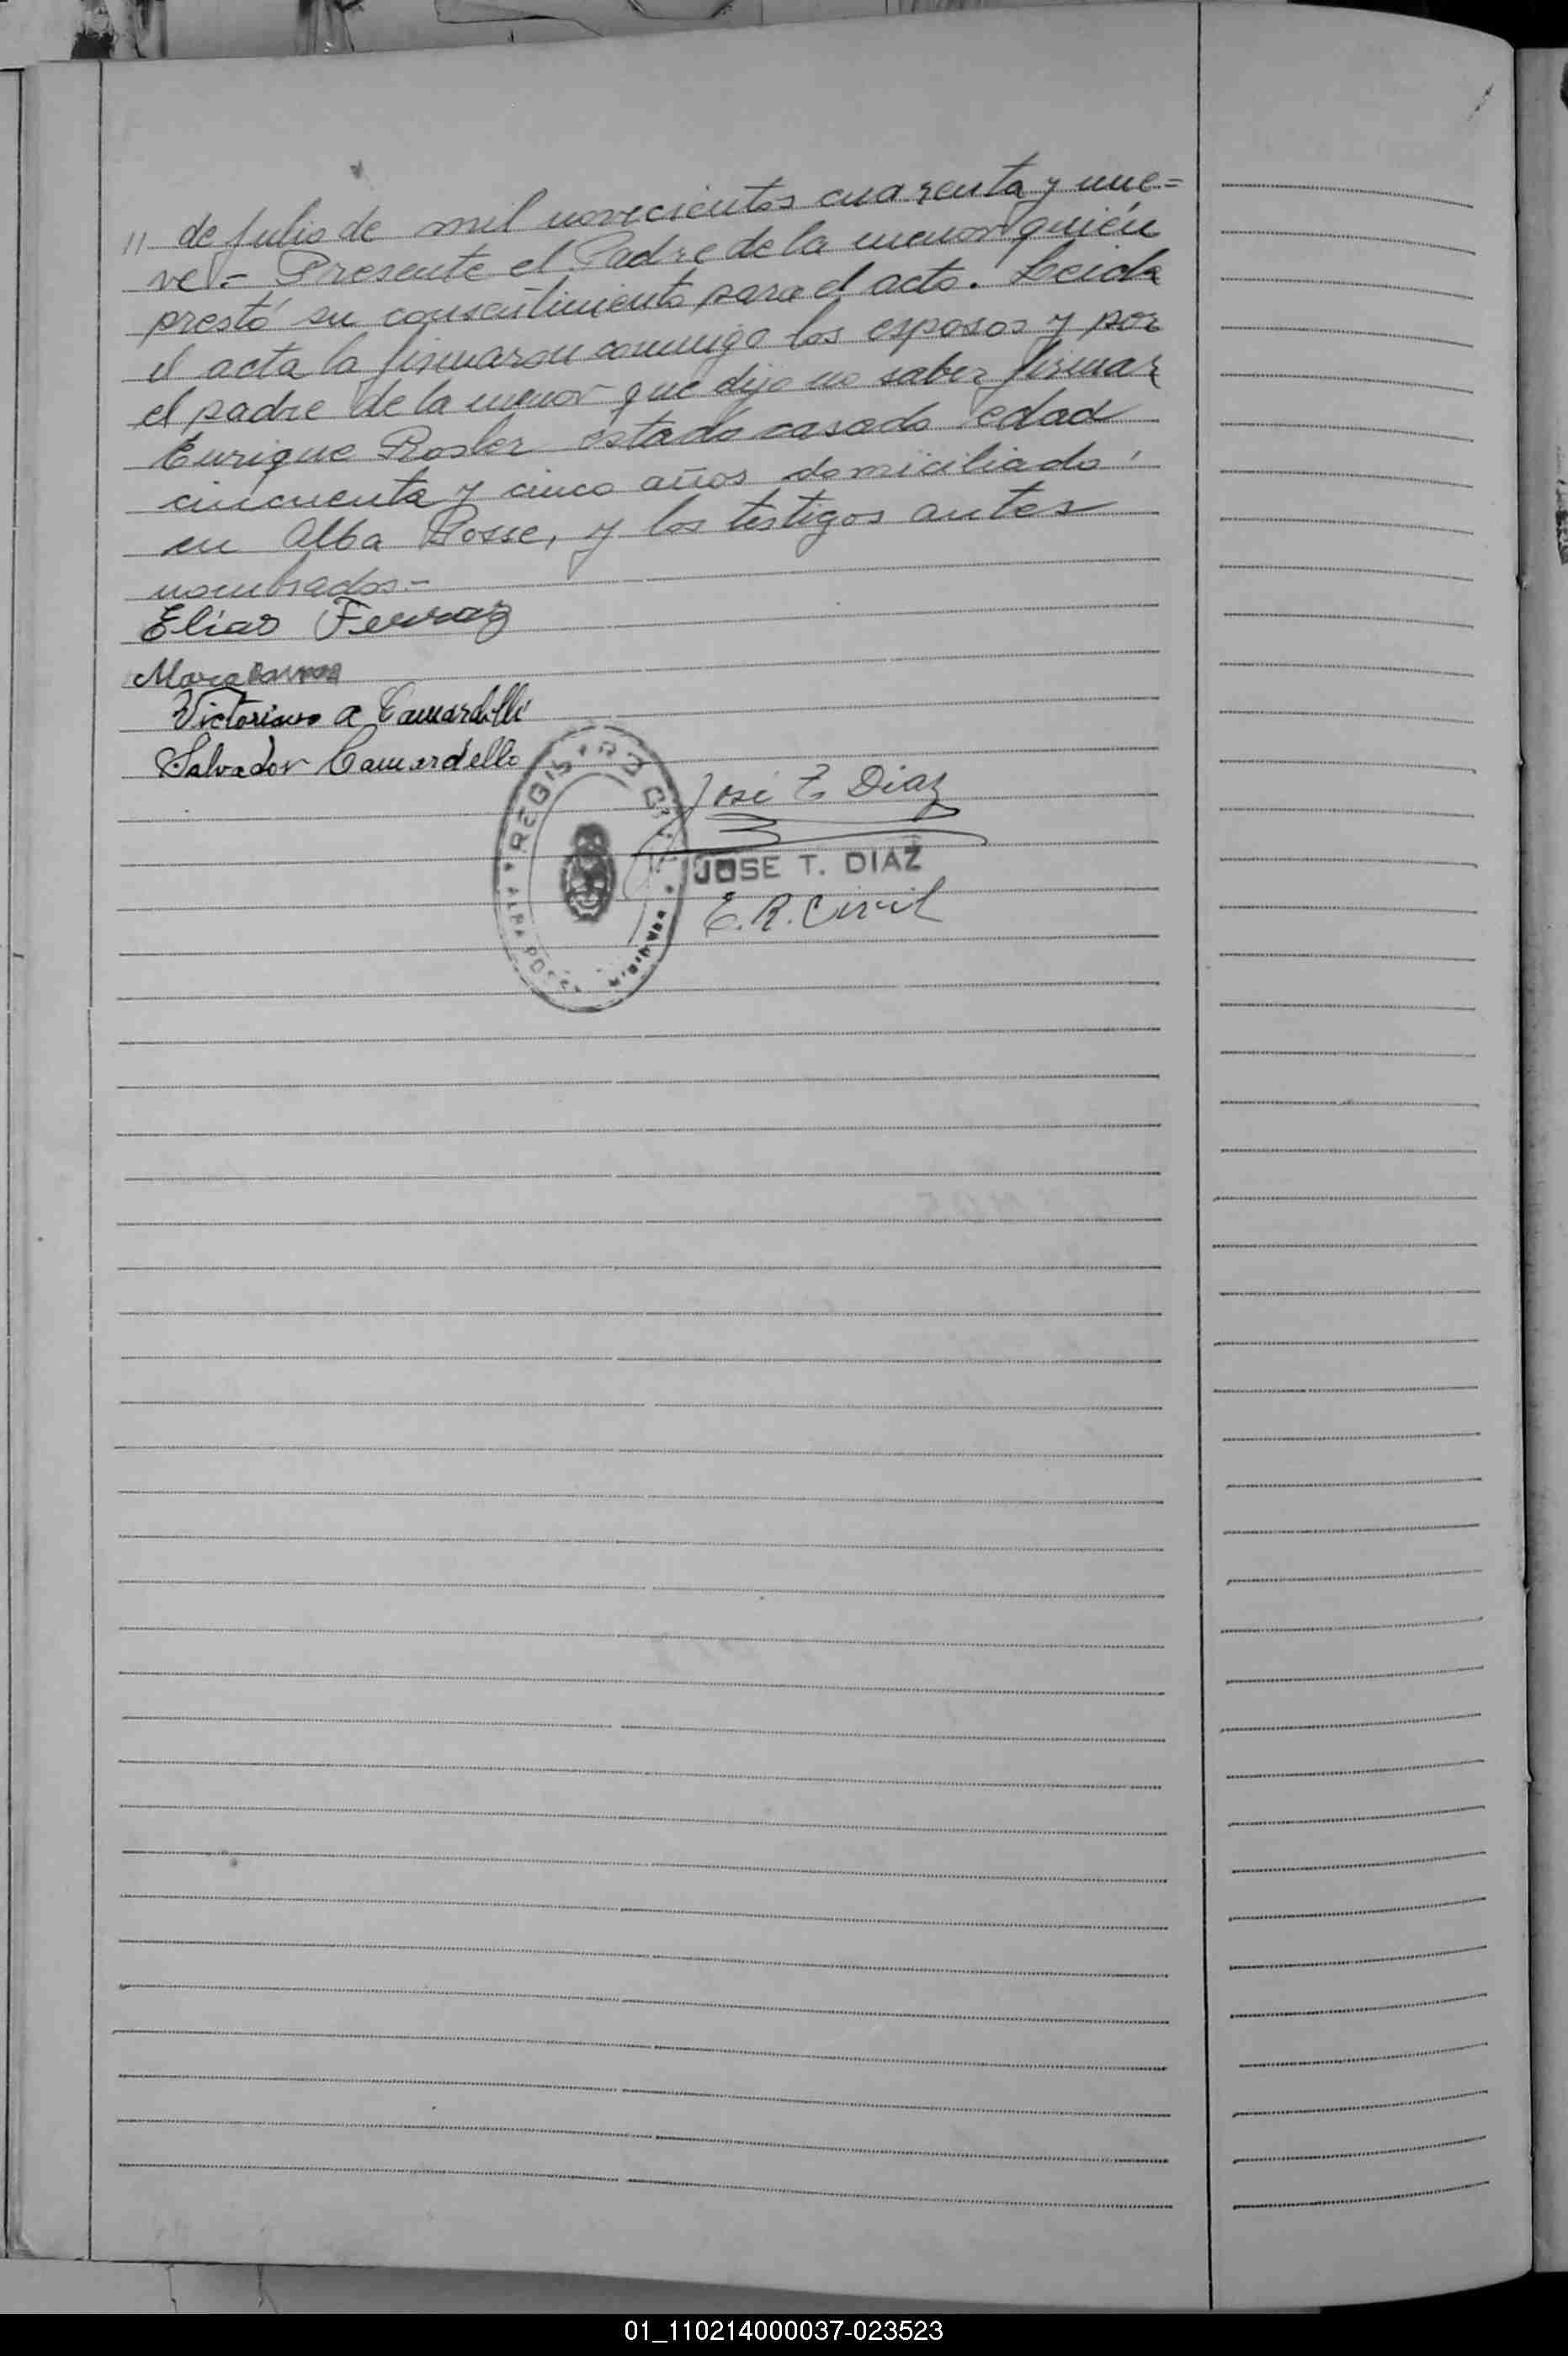 11 de Julio de mil novecientos cuarenta y nue=
ve.= Presente el Padre de la menor quién
prestó su consentimiento para el acto. Leida
el acta la firmaron conmigo los esposos y por
el padre de la menor que dijo no saber firmar
Enrique Rosler estado casado edad
cincuenta y cinco años domiciliado
en Alba Posse, y los testigos antes
nombrados.=
Elias Ferraz
Maria
Victoriano a Camardelli
Salvador Camardello
REGISTRO CIVIL
ALBA POSSE
MISIONES
José T. Diaz
JOSE T. DIAZ
E. R. Civil
01_110214000037-023523